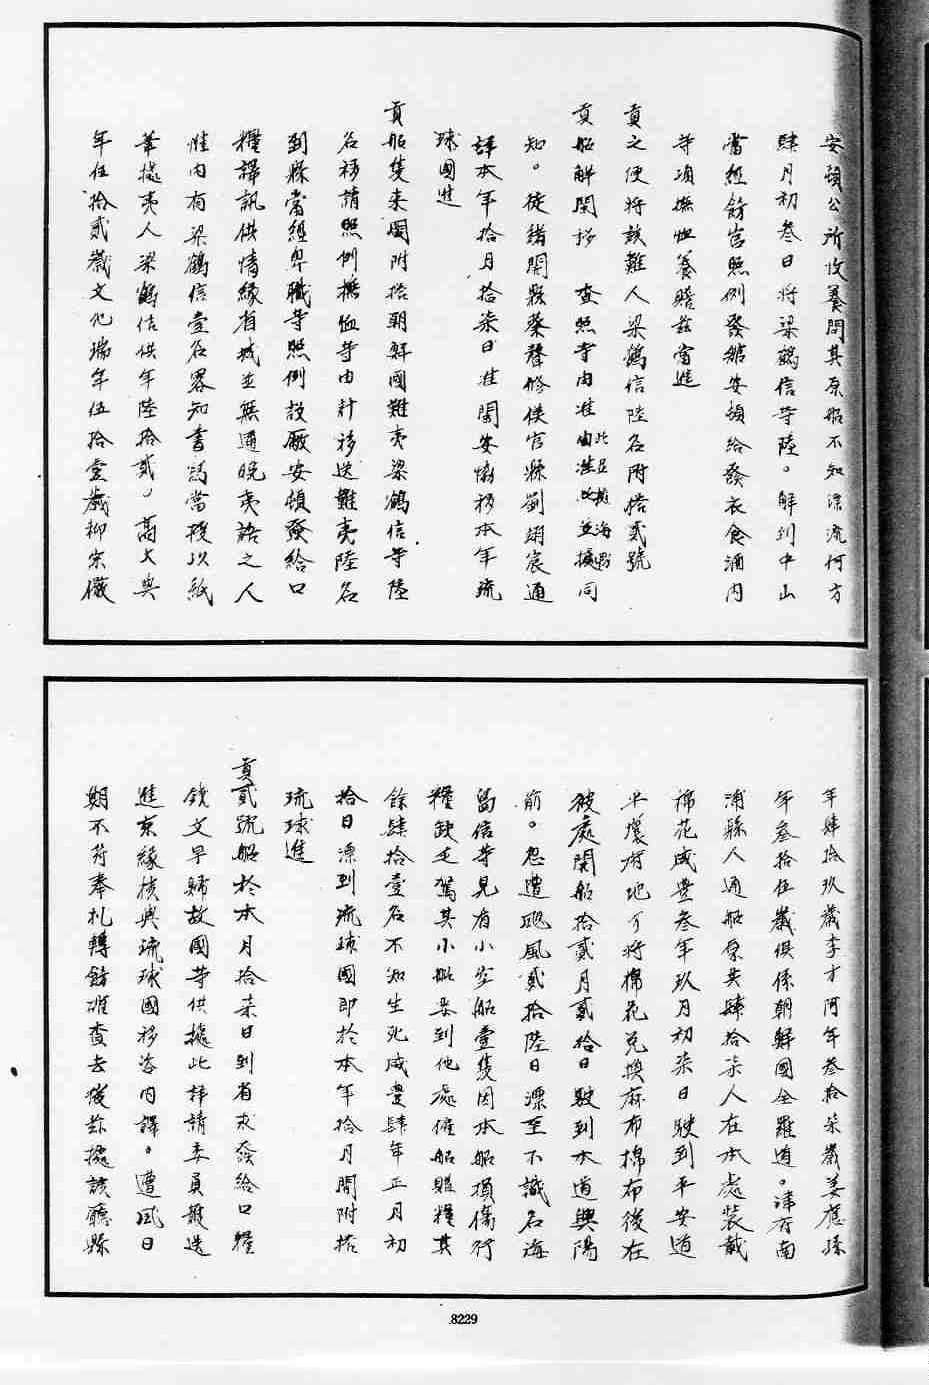 安頓公所收養問其原船不知漂流何方
肆月初叁日將梁鶴信等陸。解到中山
當經飭官照例發館安頓給發衣食酒肉
等項撫恤養贍茲當進
貢之便將該難人梁鶴信陸名附搭貳號
貢船解閩移 查照等由准此並據同
知。徒緒閩縣蔡聲修侯官縣劉翊宸通
詳本年拾月拾柒日准閩安協移本年琉
球國進
貢船隻來閩附搭朝鮮國難夷梁鶴信等陸
名移請照例撫恤等由計移送難夷陸名
到縣當經卑職等照例設廠安頓發給口
糧譯訊供情緣省城並無通曉夷語之人
惟內有梁鶴信壹名畧知書寫當授以紙
筆據夷人梁鶴信供年陸拾貳。高大興
年伍拾貳歲文化瑞年伍拾壹歲柳宗儀
年肆拾玖歲李才阿年叁拾柒歲姜應孫
年叁拾伍歲俱係朝鮮國全羅道。津府南
浦縣人通船原共肆拾柒人在本處裝載
棉花咸豐叁年玖月初柒日駛到平安道
平壤府地方將棉花兌換麻布棉布後在
彼處開船拾貳月貳拾日駛到本道興陽
前。忽遭颶風貳拾陸日漂至不識名海
島信等見有小空船壹隻因本船損傷行
糧缺乏駕其小船要到他處僱船賍糧其
餘肆拾壹名不知生死咸豐肆年正月初
拾日漂到琉球國即於本年拾月間附搭
琉球進
貢貳號船於本月拾柒日到省求發給口糧
錢文早歸故國等供據此拜請委員護送
進京緣核與琉球國移咨內譯。遭風日
期不符奉札轉飭確查去後茲據該廳縣
8229